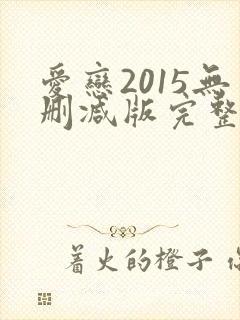 愛戀2015無
删减版完整
着火的橙子